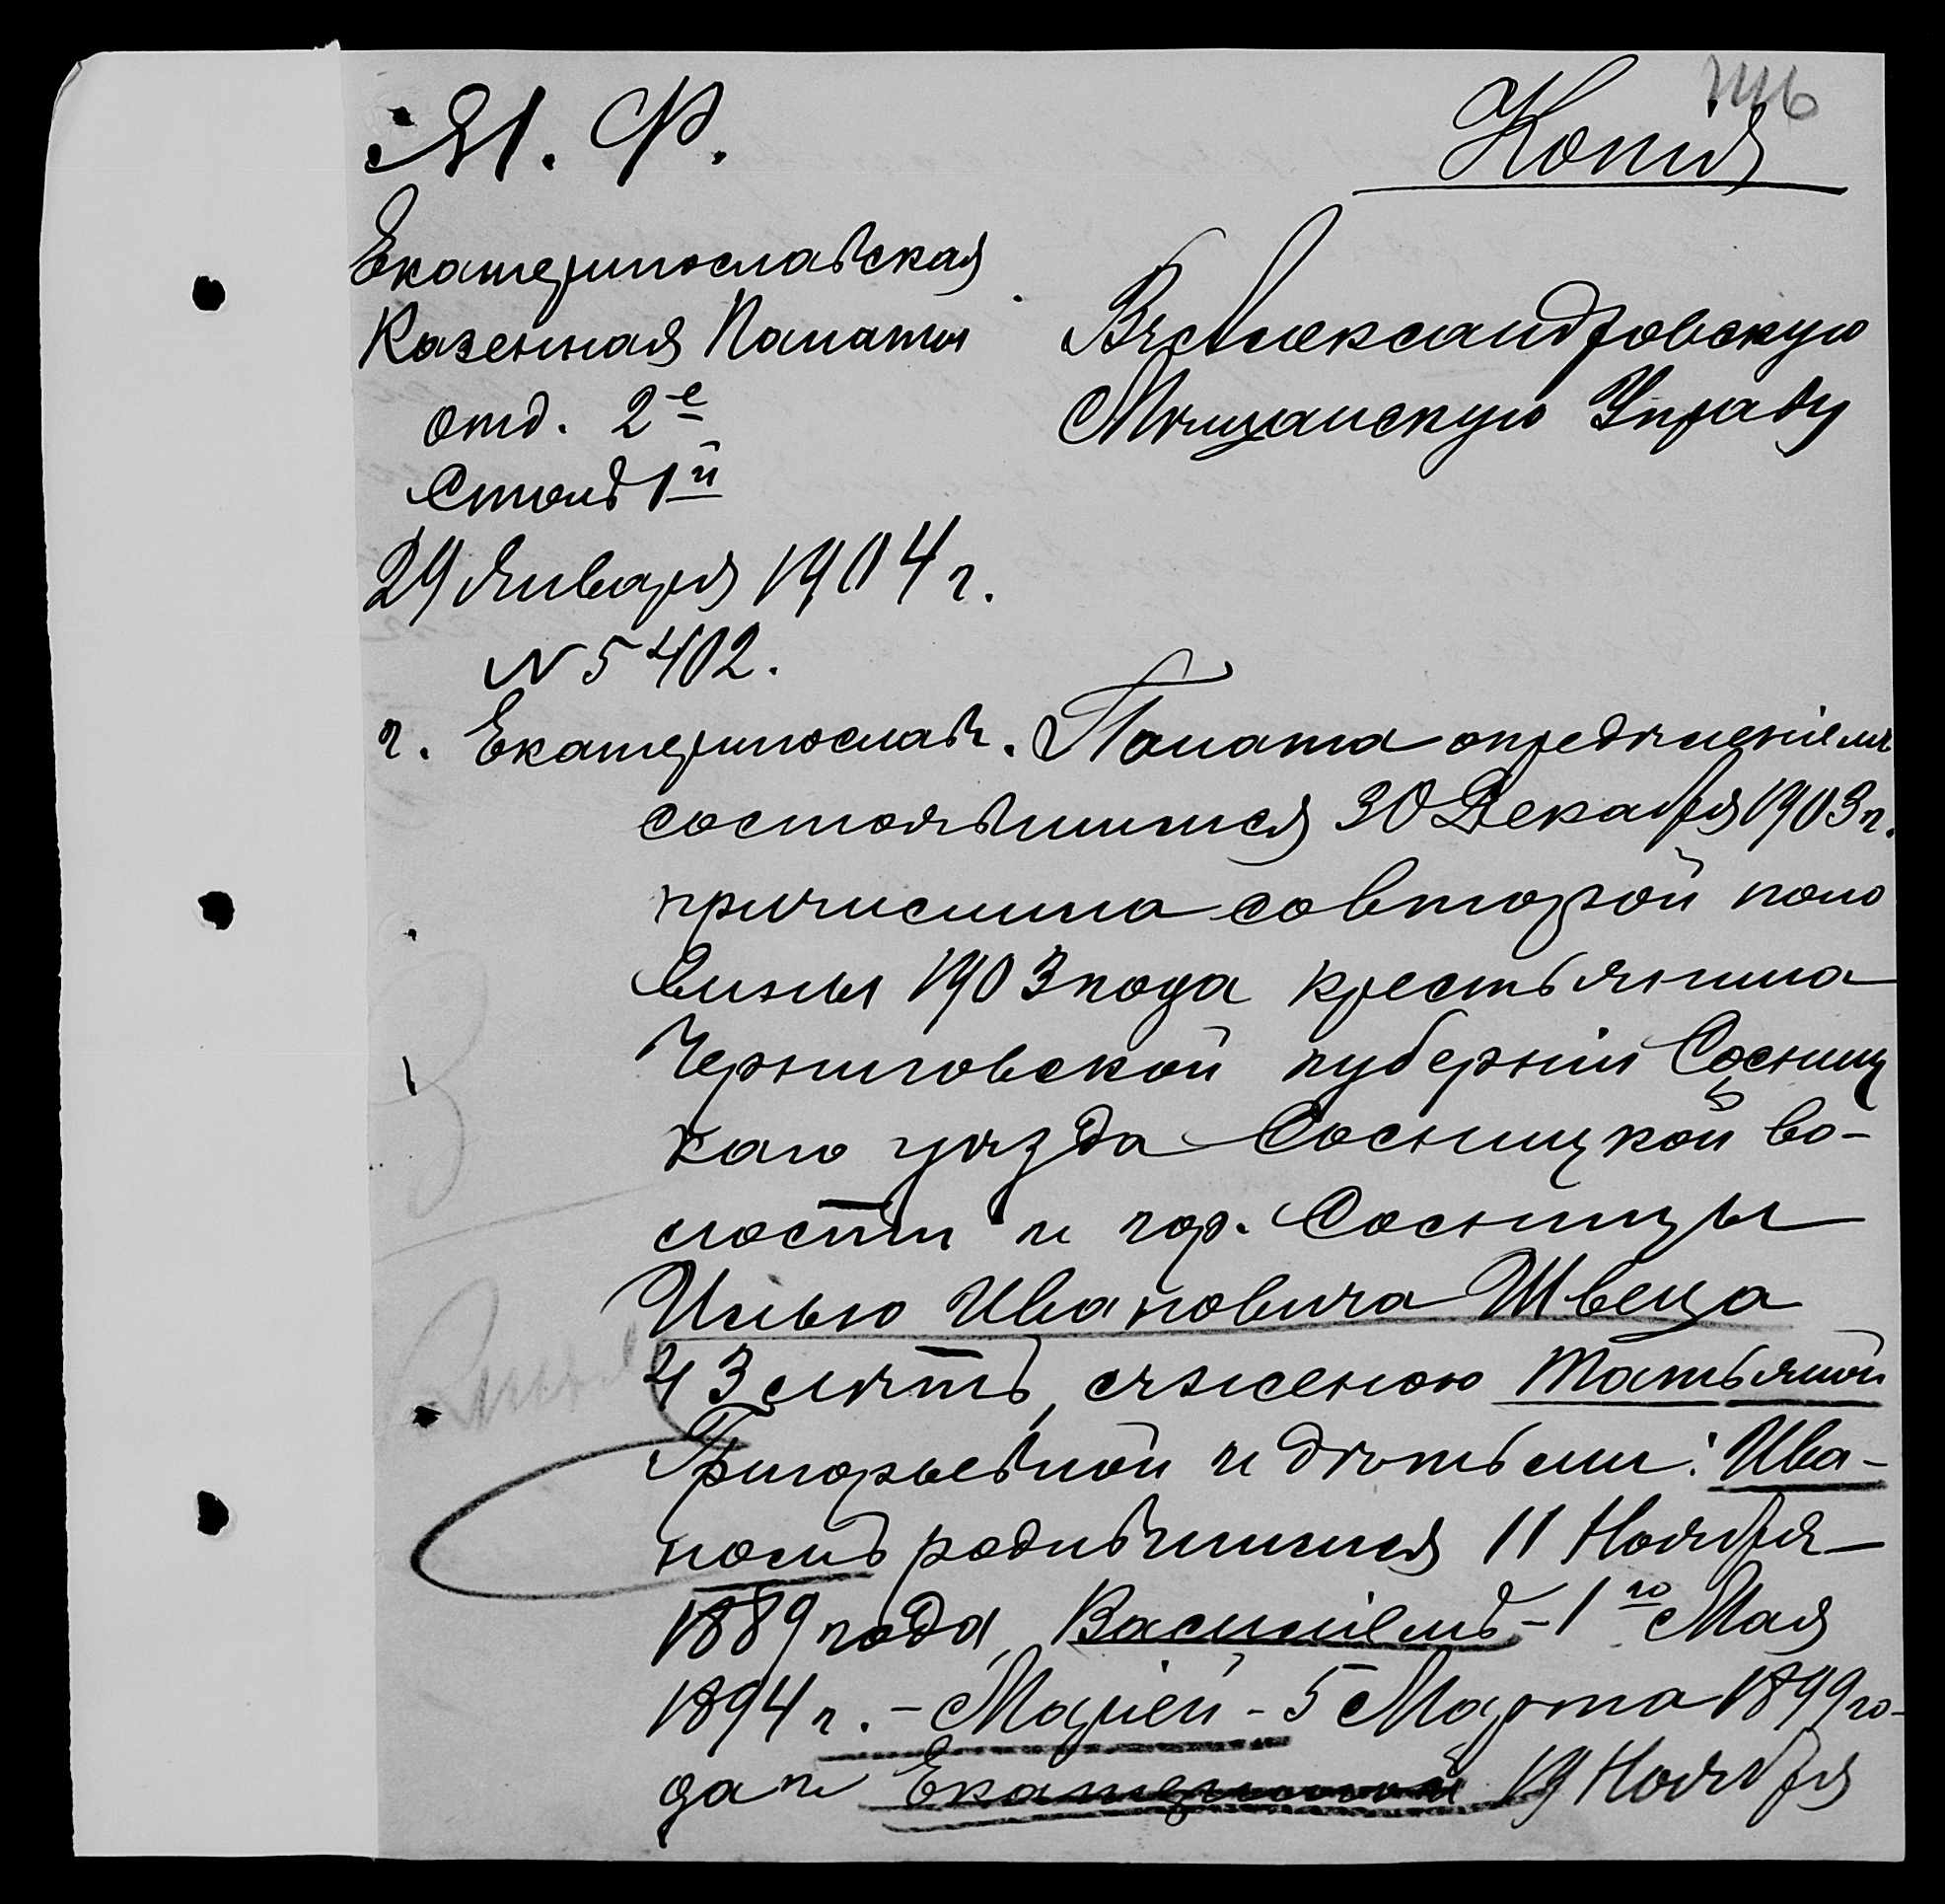 М. Ф.
Копія
Екатеринославская
Казенная Палата
отд. 2е
Столъ 1й
29 Января 1904 г.
N 5402.
г. Екатеринослав.
Въ Александровскую
Мѣщанскую Управу
Палата опредѣленіемъ
состоявшимся 30 Декабря 1903 г.
причислила со второй поло
вины 1903 года крестьянина
Черниговской губерніи Сосниц
каго уѣзда Сосницкой во-
лости и гор. Сосницы
Илью Ивановича Швеца
43 лѣтъ, съ женою Татьяной
Григорьевной и дѣтьми: Ива-
номъ родившимся 11 Ноября
1889 года, Василіемъ - 1го Мая
1894 г. - Маріей - 5 Марта 1899 го-
да и Екатериной 19 Ноября